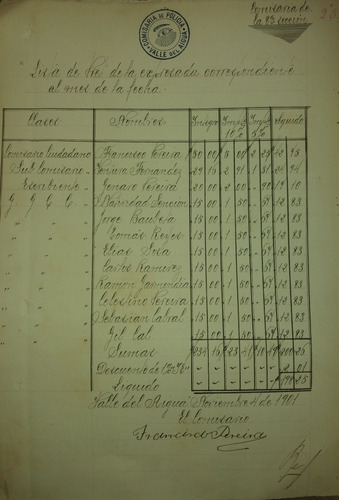 COMISARIA DE POLICIA
VALLE DEL AIGUA
Comisaria de
la 9ª sección
Lista de Pre de la expresada correspondiente
al mes de la fecha.
Clases Nombres Integro Impto 10% Impto 5% Líquido
Comisario Ciudadano Francisco Pereira 50 00 5 00 2 25 42 75
Sub Comisario Ventura Fernandez 29 15 2 91 1 31 24 94
Escribiente Genaro Pereira 20 00 2 00 " 90 17 10
G. G. C. C. Natividad Asencion 15 00 1 50 " 67 12 83
" " Jorge Bautista 15 00 1 50 " 67 12 83
" " Tomás Reyes 15 00 1 50 " 67 12 83
" " Elias Sosa 15 00 1 50 " 67 12 83
" " Carlos Ramirez 15 00 1 50 " 67 12 83
" " Ramon Garmendia 15 00 1 50 " 67 12 83
" " Celestino Pereira 15 00 1 50 " 67 12 83
" " Sebastian Cabral 15 00 1 50 " 67 12 83
" " Gil Cal 15 00 1 50 " 67 12 83
Sumas 234 15 23 41 10 49 200 25
Descuento de 2
Líquido 198 25
Valle del Aiguá Noviembre 4 de 1901
El Comisario
Francisco Pereira